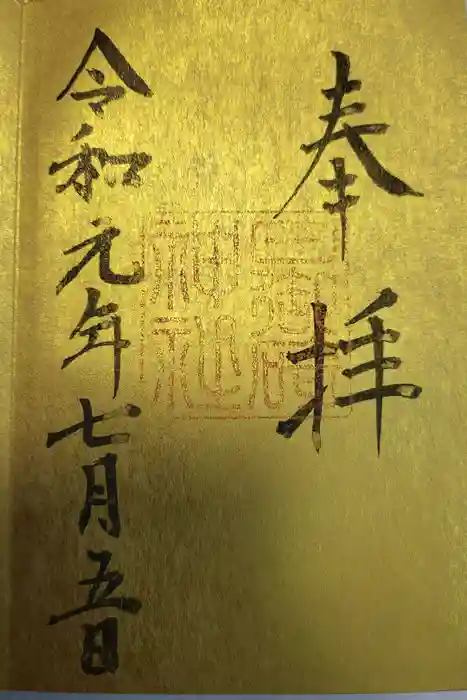 奉拝
令和元年七月五日